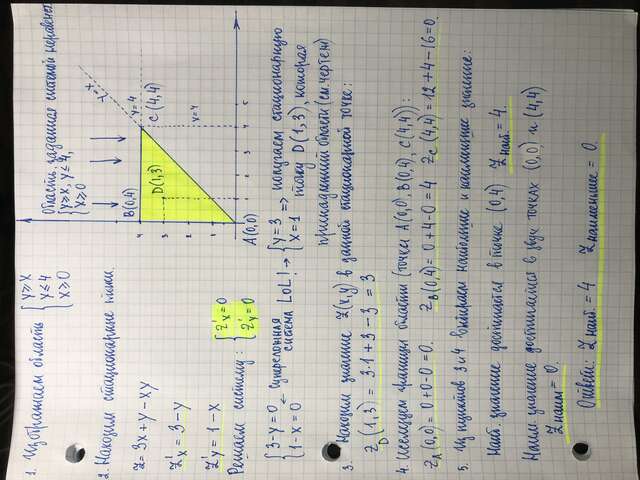 1. Изображаем область { y ≥ x
y ≤ 4
x ≥ 0
Область, заданная системой неравенств
{ y ≥ x, y ≤ 4,
x ≥ 0
2. Находим стационарные точки.
Z = 3x + y − xy
Z'x = 3 − y
Z'y = 1 − x
Решаем систему: { Z'x = 0
Z'y = 0
B(0,4)
y = x
y = 4
D(1,3)
C(4,4)
x = 4
A(0,0)
4
3
2
1
1 2 3 4 5
{ 3 − y = 0
1 − x = 0
← суперсложная
система LoL! → { y = 3
x = 1
=> получаем стационарную
точку D(1,3), которая
принадлежит области (см. чертеж)
3. Находим значение Z(x,y) в данной стационарной точке:
Z_D(1,3) = 3·1 + 3 − 3 = 3
4. Исследуем границы области (точки A(0,0), B(0,4), C(4,4)):
Z_A(0,0) = 0+0−0 = 0. Z_B(0,4) = 0+4−0 = 4 Z_C(4,4) = 12+4−16 = 0.
5. Из пунктов 3 и 4 выбираем наибольшее и наименьшее значение:
Наиб. значение достигается в точке (0,4) Z наиб. = 4.
Наим. значение достигается в двух точках (0,0) и (4,4)
Z наим = 0.
Ответ: Z наиб. = 4 Z наименьшее = 0.